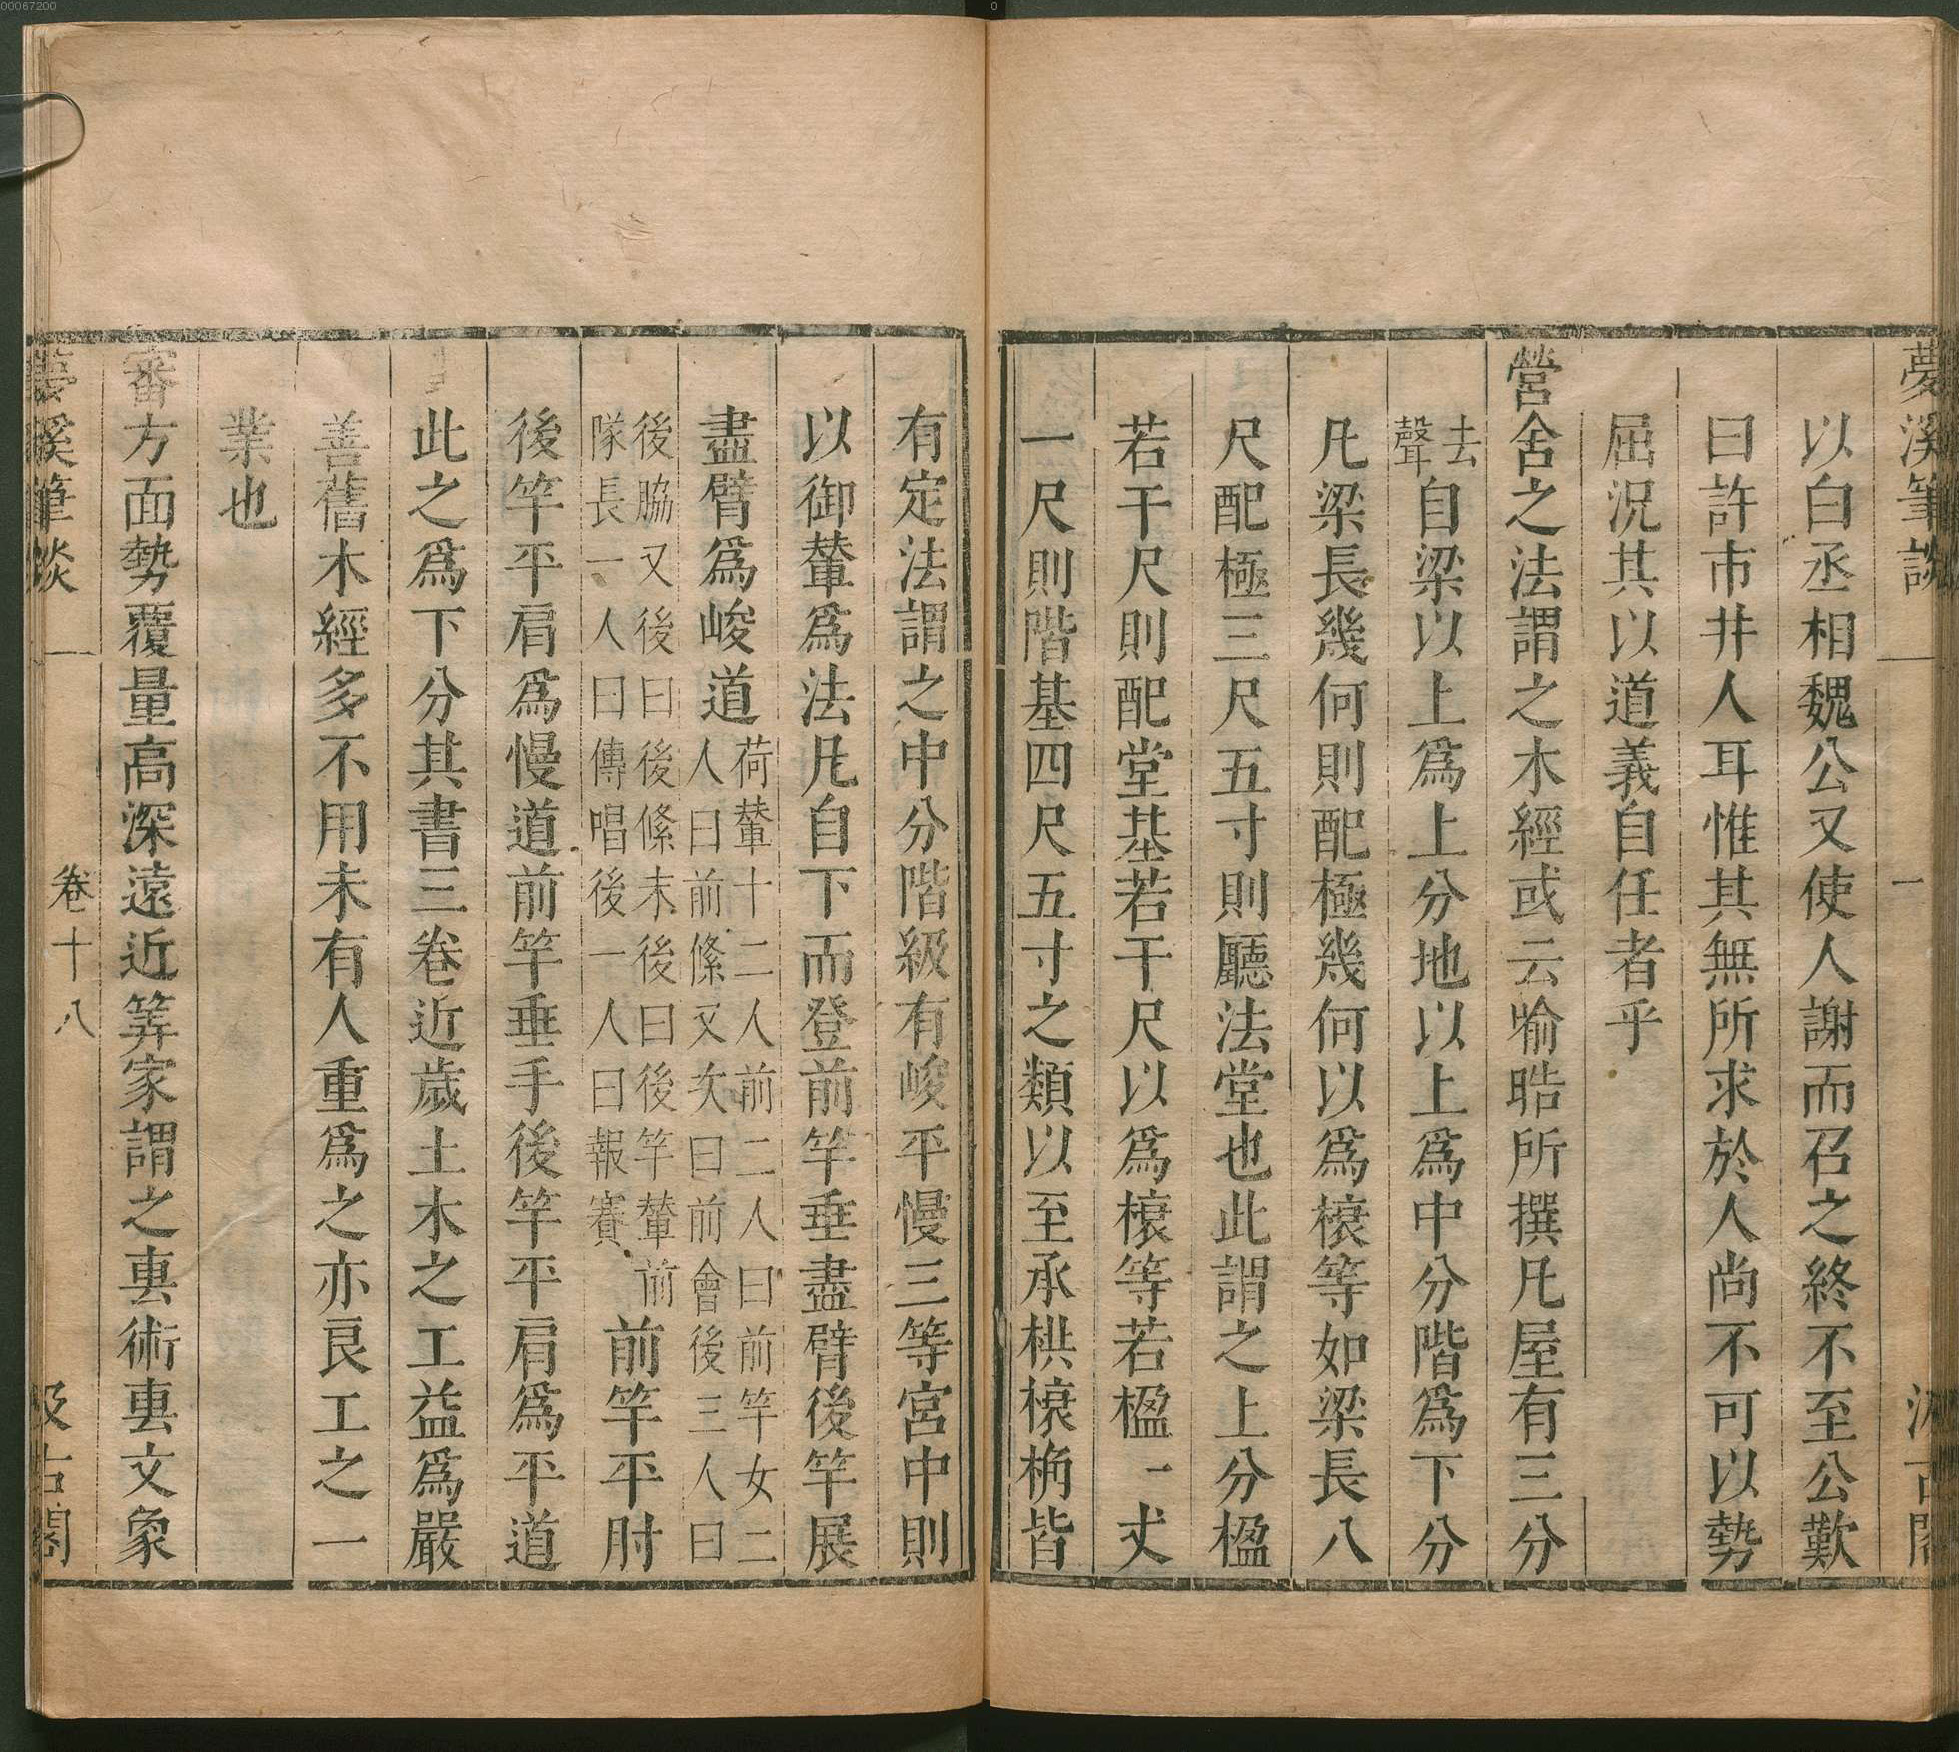 00067200
0
夢溪筆談
一
汲古閣
以白丞相魏公又使人謝而召之終不至公歎
曰許市井人耳惟其無所求於人尚不可以勢
屈況其以道義自任者乎
營舍之法謂之木經或云喻皓所撰凡屋有三分
去聲自梁以上爲上分地以上爲中分階爲下分
凡梁長幾何則配極幾何以爲榱等如梁長八
尺配極三尺五寸則廳法堂也此謂之上分楹
若干尺則配堂基若干尺以爲榱等若楹一丈
一尺則階基四尺五寸之類以至承栱榱桷皆
有定法謂之中分階級有峻平慢三等宮中則
以御輦爲法凡自下而登前竿垂盡臂後竿展
盡臂爲峻道荷輦十二人前二人曰前竿女二
人曰前絛又次曰前會後三人曰
後脇又後曰後絛末後曰後竿輦前
隊長一人曰傳唱後一人曰報賽前竿平肘
後竿平肩爲慢道前竿垂手後竿平肩爲平道
此之爲下分其書三卷近歲土木之工益爲嚴
善舊木經多不用未有人重爲之亦良工之一
業也
審方面勢覆量高深遠近筭家謂之軎術軎文象
夢溪筆談
卷十八
汲古閣